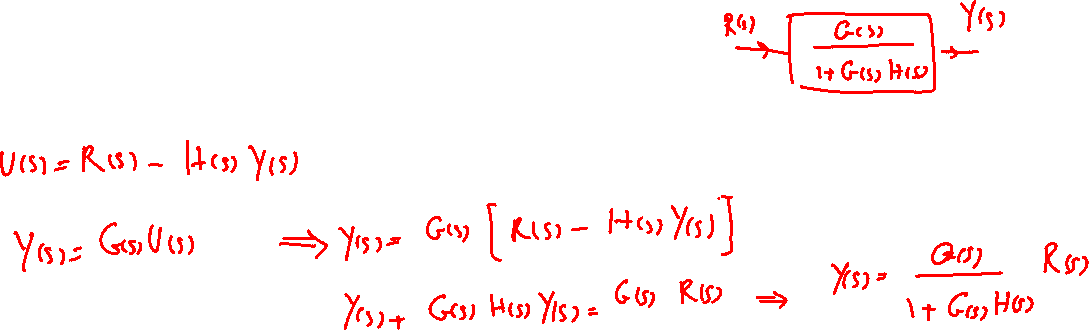 R(s) G(s) / 1+ G(s) H(s) Y(s)
U(s) = R(s) - H(s) Y(s)
Y(s) = G(s) U(s) ⟹ Y(s) = G(s) [ R(s) - H(s) Y(s) ]
Y(s) + G(s) H(s) Y(s) = G(s) R(s) ⟹ Y(s) = G(s) / 1 + G(s) H(s) R(s)